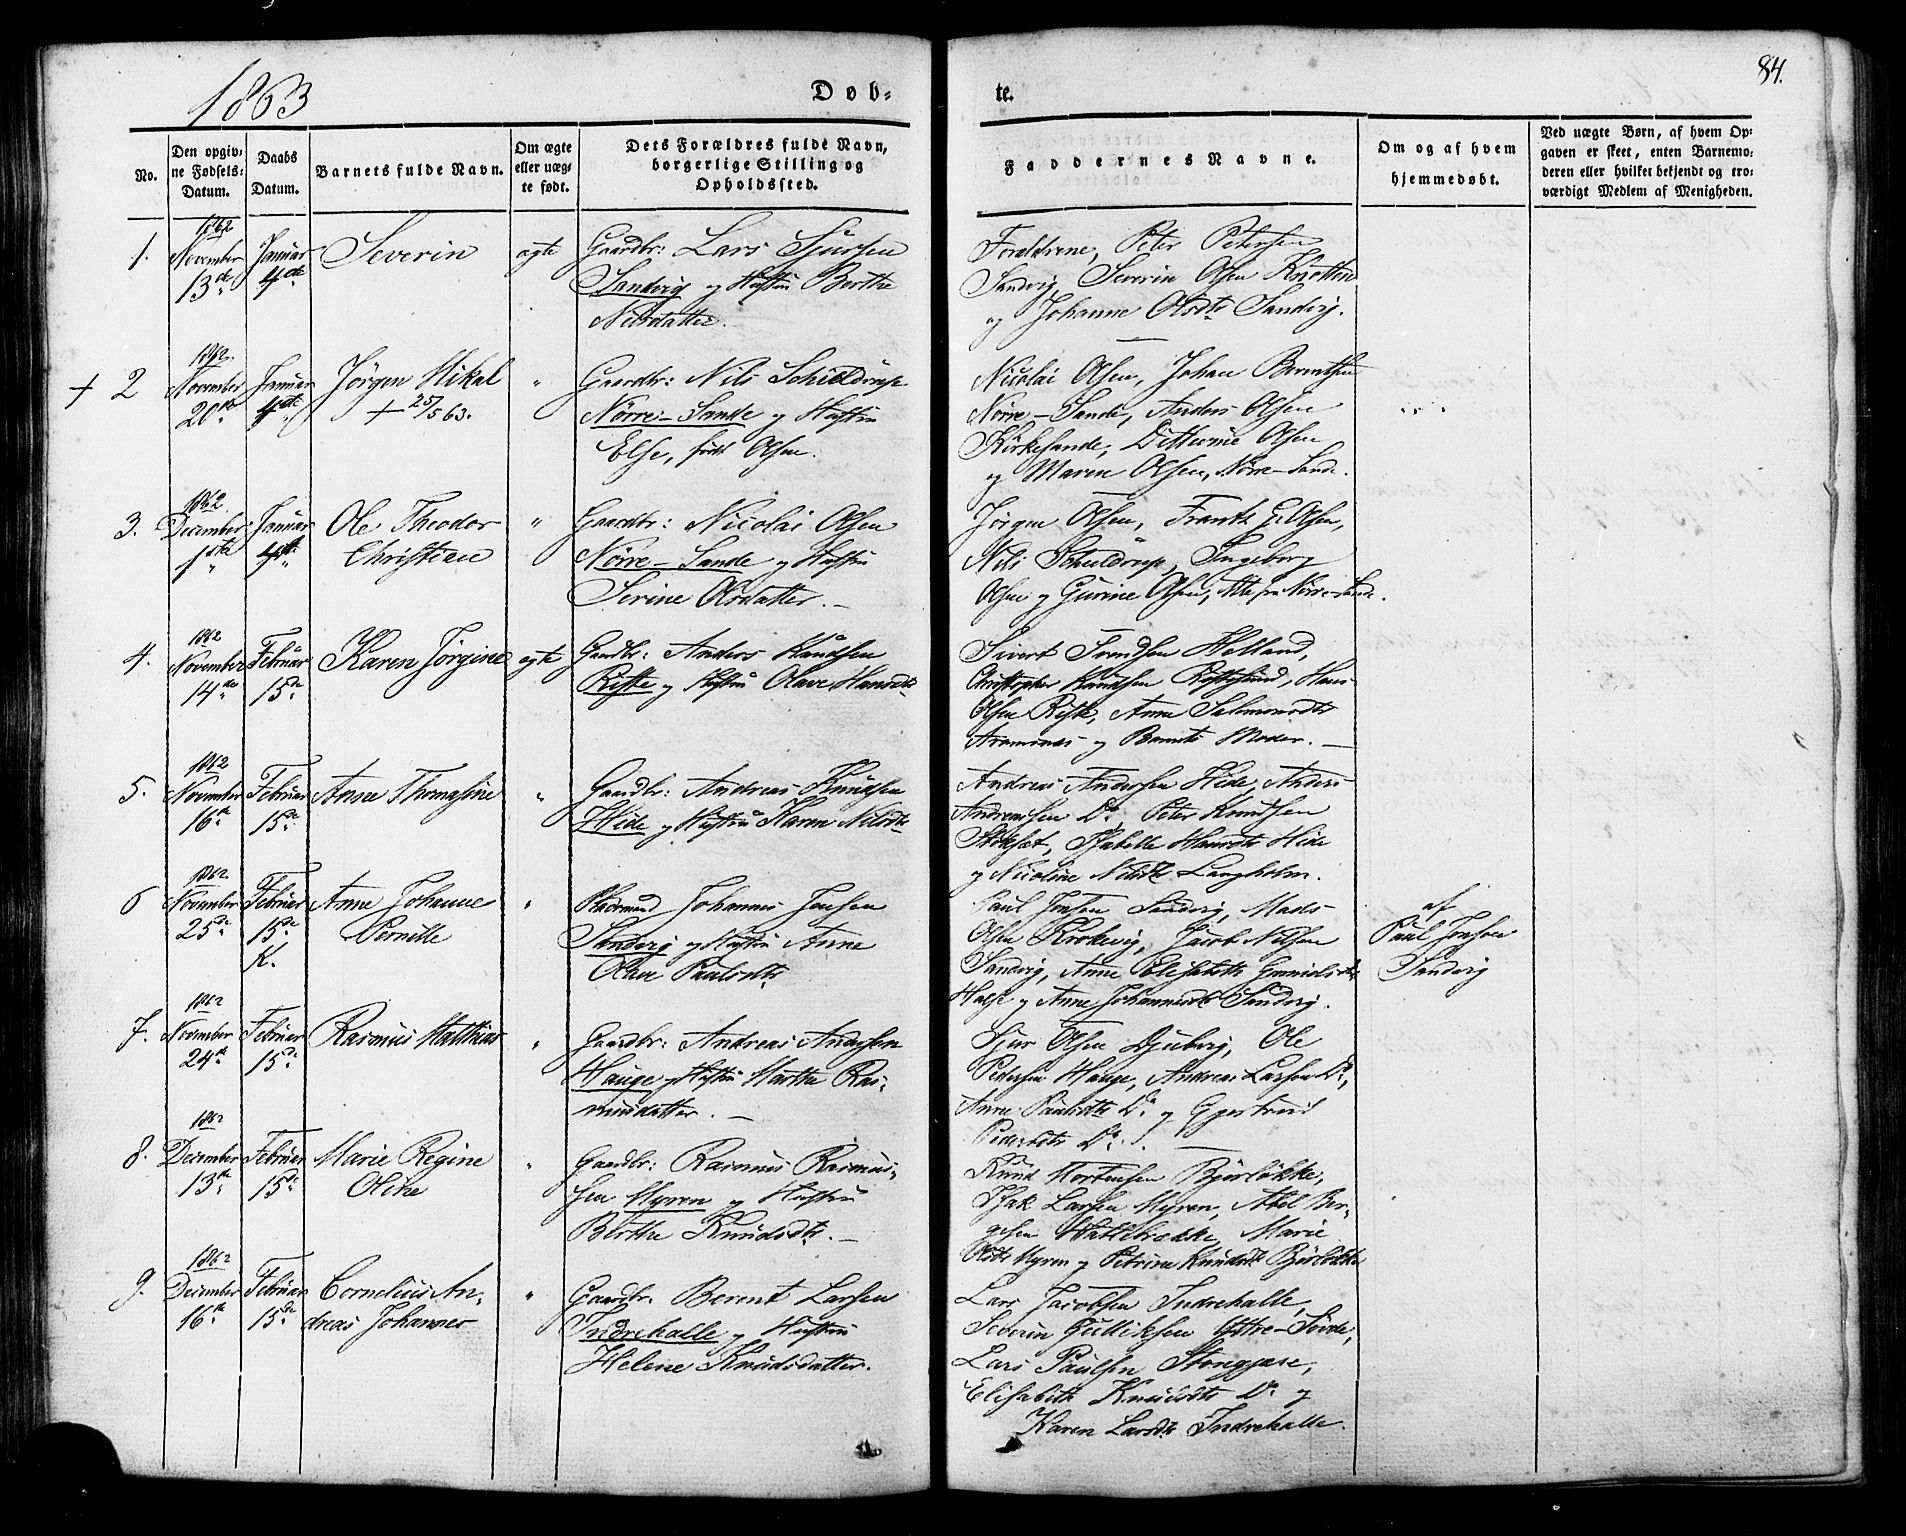 1863
Døb-
te.
84.
No.
Den opgiv-
ne Fødsels-
Datum.
Daabs
Datum.
Barnets fulde Navn.
Om ægte
eller uæg-
te født.
Dets Forældres fulde Navn,
borgerlige Stilling og
Opholdssted.
Faddernes Navne.
Om og af hvem
hjemmedøbt.
Ved uægte Børn, af hvem Op-
gaven er skeet, enten Barnemo-
deren eller hvilket bekjendt og tro-
værdigt Medlem af Menigheden.
1.
1862
November
13de
Januar
4de
Severin
ægte
Gaardbr: Lars Sjursen
Sandvig og Hustru Berthe
Nilsdatter.
Forældrene, Peter Petersen
Sandvig, Severin Olsen Knotten
og Johanne Olsdtr Sandvig.
+ 2
1862
November
20de
Januar
4de
Jörgen Mikal
+ 25/5 63.
"
Gaardbr: Nils Schieldrup
Nörre-Sande og Hustru
Else, født Olsen.
Nicolai Olsen, Johan Berenthsen
Nörre-Sande, Anders Olsen
Kirkesande, Olsen
og Maren Olsen, Nörre-Sande.
3.
1862
December
1ste
Januar
4de
Ole Theodor
Christian
"
Gaardbr: Nicolai Olsen
Nörre-Sande og Hustru
Serine Olsdatter.
Jörgen Olsen, Frants E. Olsen,
Nils Schieldrup, Ingeborg
Olsen og Gurine Olsen, Alle fra Nörre-Sande.
4.
1862
November
14de
Februar
15de
Karen Jörgine
ægte
Gaardbr: Anders Knudsen
Riste og Hustru Olave Hansdtr
Sivert Svendsen Helland,
Christopher Knudsen Ristesund, Hans
Olsen Riste, Anne Salomonsdtr
Aramsnes og Barnets Moder.
5.
1862
November
16de
Februar
15de
Anne Thomasine
"
Gaardbr: Andreas Knudsen
Hide og Hustru Karen Nilsdtr
Andreas Andersen Hide, Anders
Andreassen Do, Peter Knudsen
Stokset, Isabelle Hansdtr Hide
og Nicoline Nilsdtr Langholm.
6
1862
November
25de
Februar
15de
K.
Anne Johanne
Pernille
"
Johannes Jensen
Sandvig og Hustru Anne
Olave Paulsdtr
Paul Jonsen Sandvig, Mads
Olsen Krokvig, Jacob Nilsen
Sandvig, Anne Elisabeth
og Anne Johannesdtr Sandvig.
af
Paul Jonsen
Sandvig
7.
1862
November
24de
Februar
15de
Rasmus Matthias
"
Gaardbr: Andreas Andersen
Hauge og Hustru Marthe Ras-
musdatter.
Sjur Olsen Djubvig, Ole
Pedersen Hauge, Andreas Larsen Do,
Anne Paulsdtr Do og Gjertrud
Pedersdtr Do.
8.
1862
December
13de
Februar
15de
Marie Regine
Oline
"
Gaardbr: Rasmus Rasmus-
sen Myren og Hustru
Berthe Knudsdtr.
Knud Mortensen Bjørløkke,
Isak Larsen Myren, Abel Ber-
gesen Marie
Olsdtr Myren og Petrine Knudsdtr Bjørløkke
9.
1862
December
16de
Februar
15de
Cornelius An-
dreas Johannes
"
Gaardbr: Berent Larsen
Indrehalle og Hustru
Helene Knudsdatter.
Lars Jacobsen Indrehalle,
Severin Gulliksen Yttre-Sövde,
Lars Paulsen
Elisabeth Knudsdtr Do og
Karen Larsdtr Indrehalle.